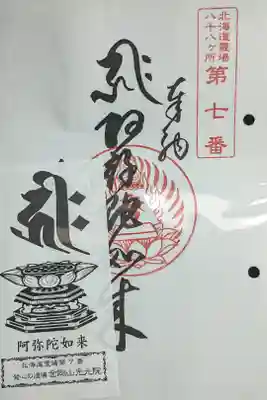 北海道霊場
八十八ヶ所
第七番
奉納
𑖮𑖿𑖨𑖱𑖾 阿弥陀如来
𑖮𑖿𑖨𑖱𑖾
阿弥陀如来
北海道霊場第7番
の道場 金剛山光元院